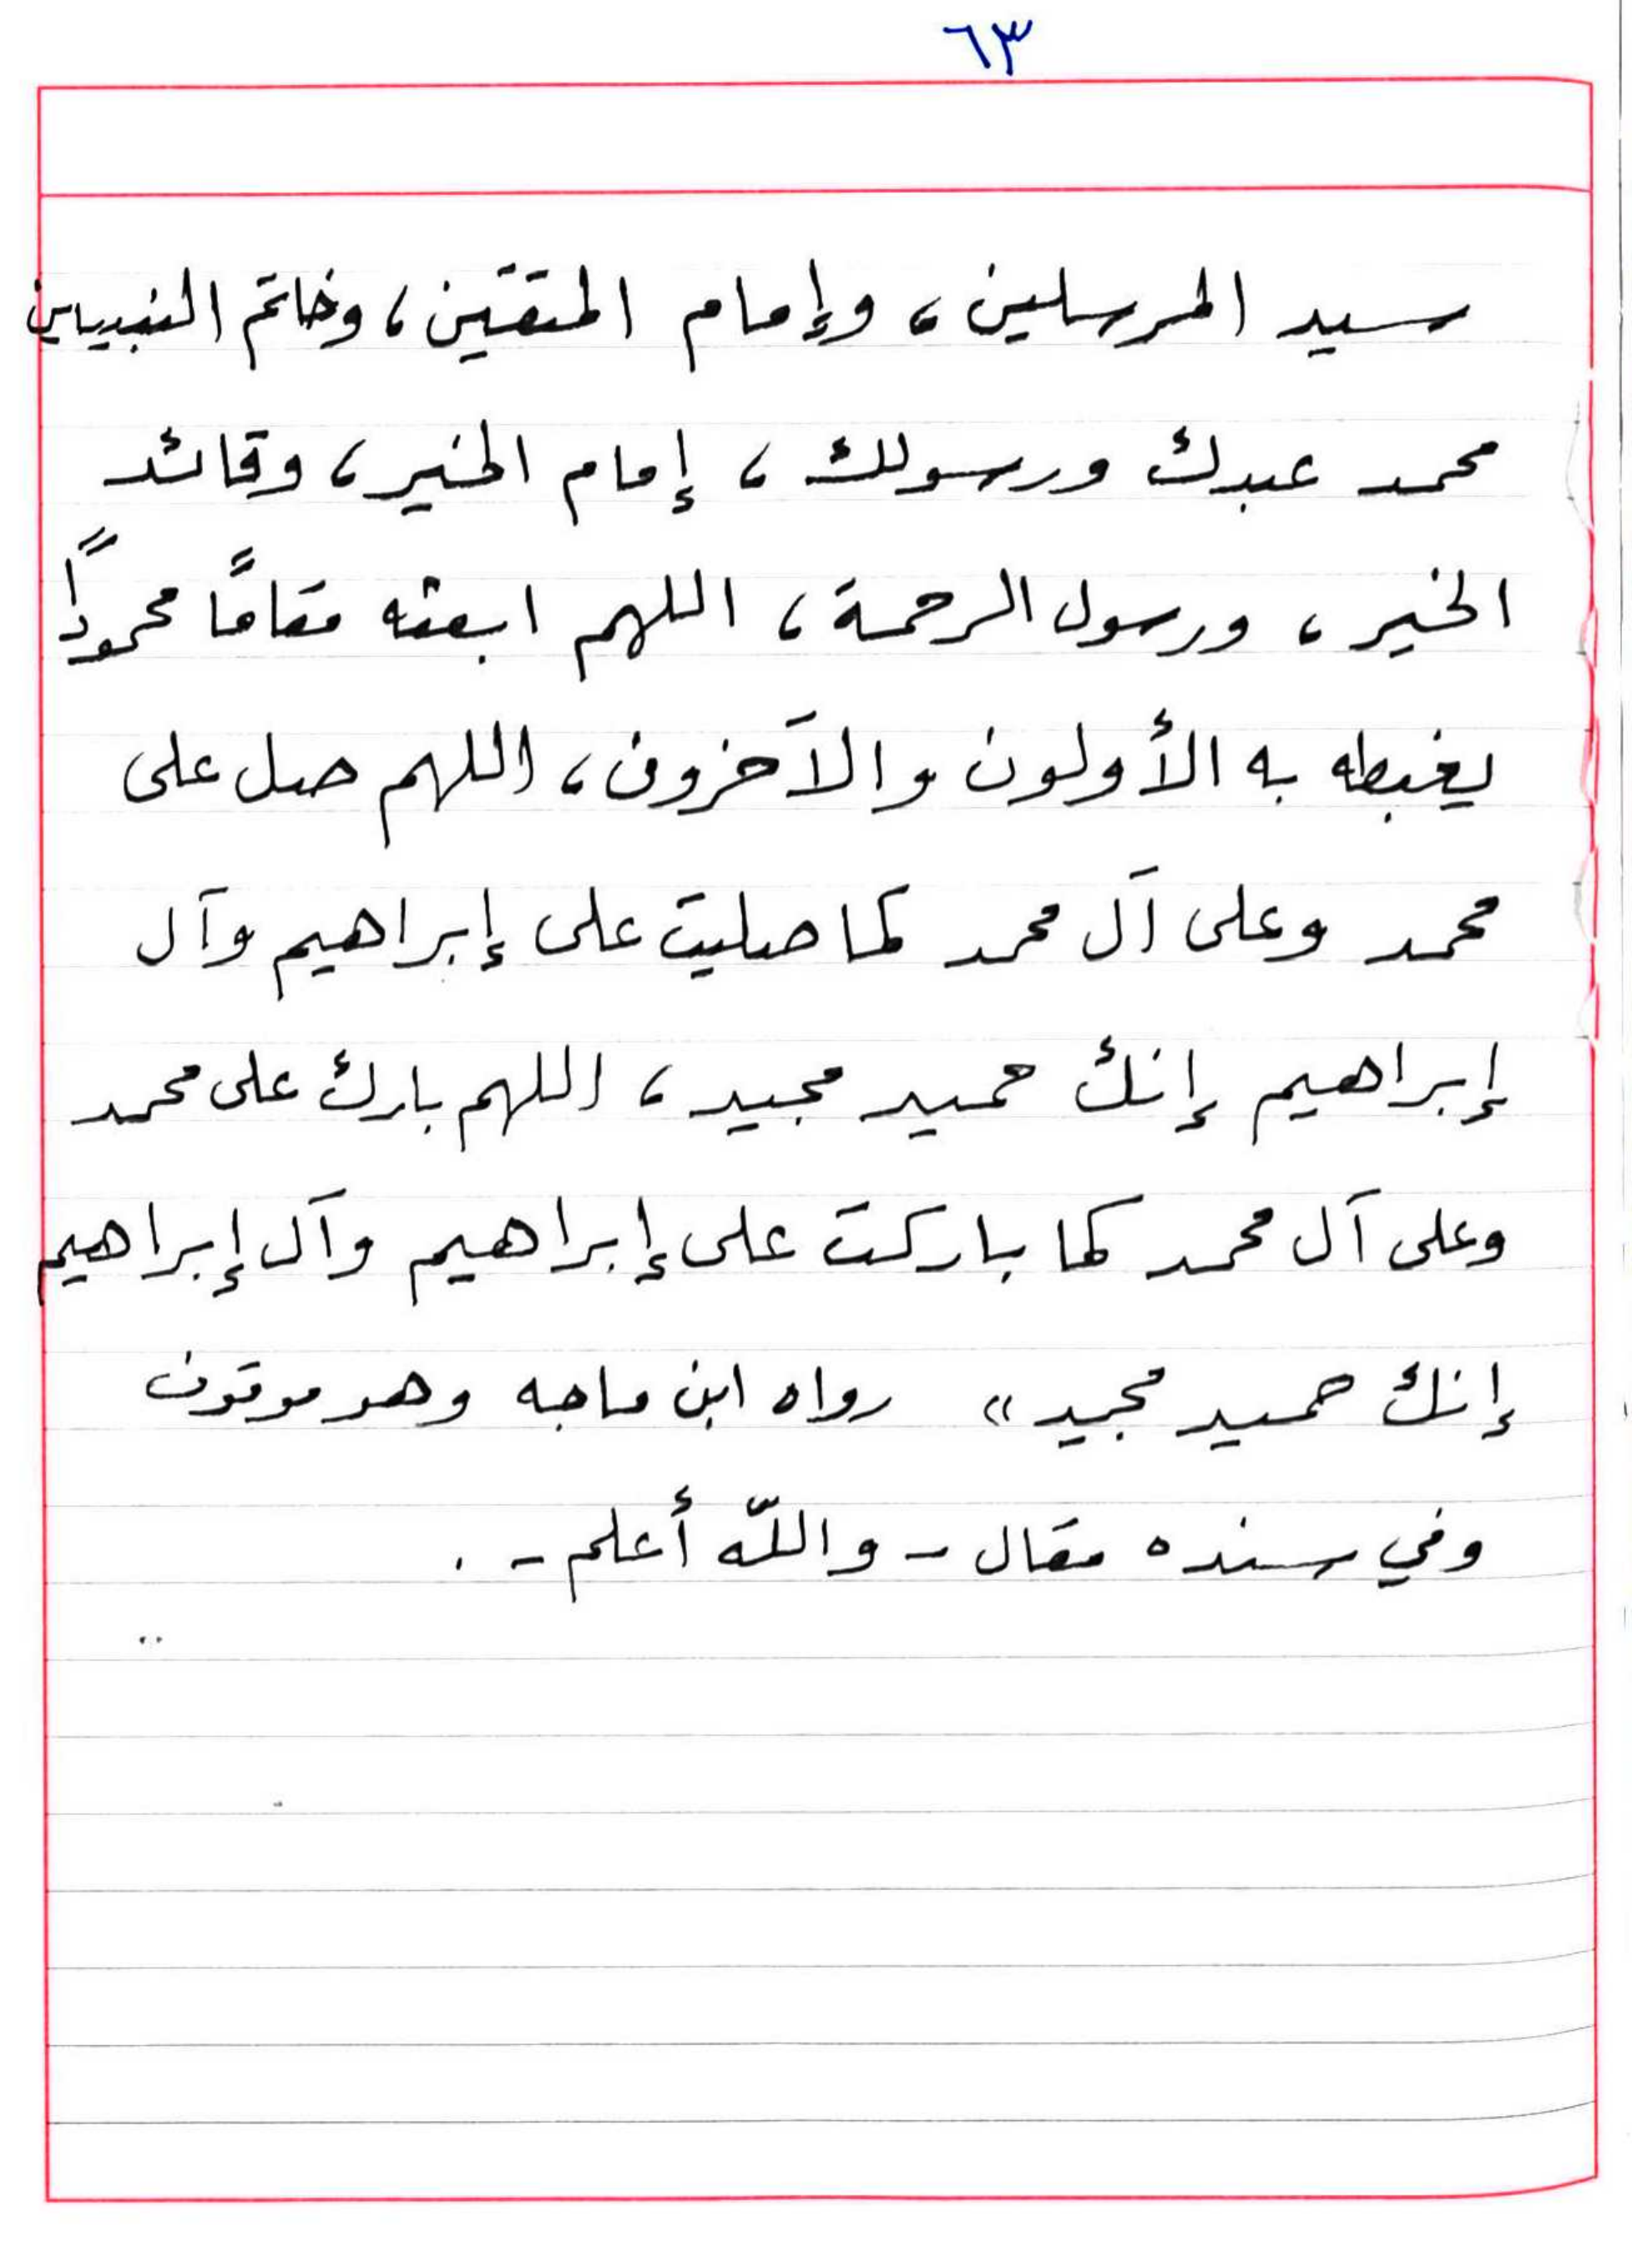 ٦٣
سيد المرسلين، وإمام المتقين، وخاتم النبييين
محمد عبدك ورسولك، إمام الخير، وقائد
الخير، ورسول الرحمة، اللهم ابعثه مقامًا محمودًا
يغبطه به الأولون والآخرون، اللهم صل على
محمد وعلى آل محمد كما صليت على إبراهيم وآل
إبراهيم إنك حميد مجيد، اللهم بارك على محمد
وعلى آل محمد كما باركت على إبراهيم وآل إبراهيم
إنك حميد مجيد» رواه ابن ماجه وهو موقوف
وفي سنده مقال - واللّه أعلم - .